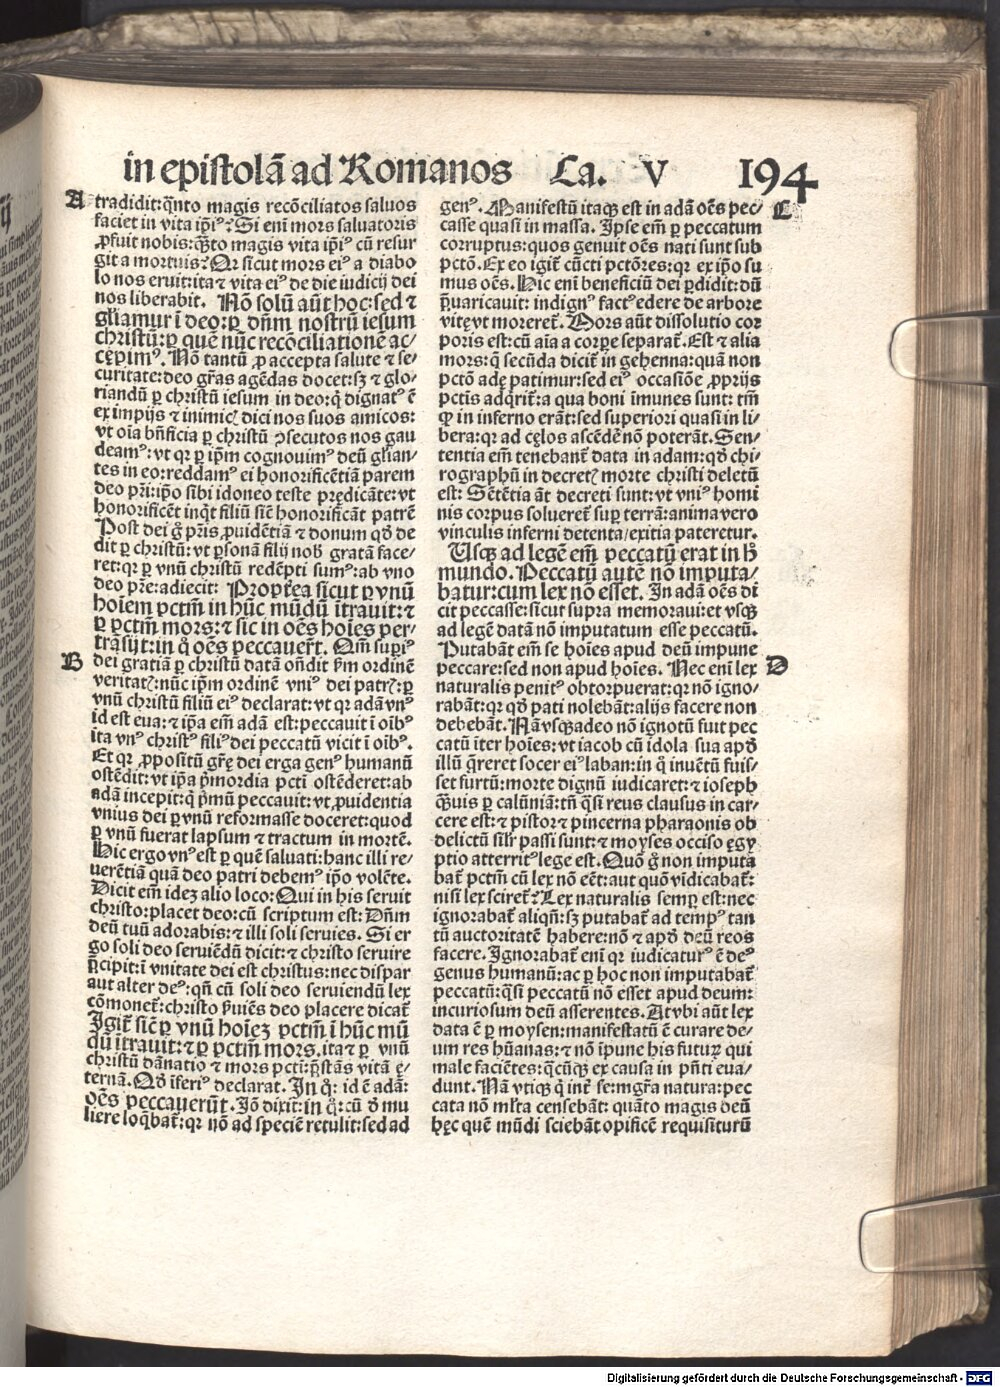 in epistolā ad Romanos Ca. V 194
A
tradidit: q̄nto magis recōciliatos saluos
faciet in vita ip̄iꝰ? Si eni mors saluatoris
ꝓfuit nobis: q̄to magis vita ip̄iꝰ cū resur
git a mortuis? Qr sicut mors eiꝰ a diabo
lo nos eruit: ita ⁊ vita eiꝰ de die iudicij dei
nos liberabit. Nō solū aūt hoc: sed ⁊
gl̄iamur ī deo: ꝑ dn̄m nostrū iesum
christū: ꝑ quē nūc recōciliationē ac/
cepimꝰ. Nō tantū ꝓ accepta salute ⁊ se/
curitate: deo gr̄as agēdas docet: sꝫ ⁊ glo/
riandū ꝑ christū iesum in deo: q̇ dignatꝰ ē
ex impijs ⁊ inimicꝭ dici nos suos amicos:
vt oīa bn̄ficia ꝑ christū ꝯsecutos nos gau
deamꝰ: vt qr ꝑ ip̄m cognouimꝰ deū gl̄ian/
tes in eo: reddamꝰ ei honorificētiā parem
deo pr̄i: ip̄o sibi idoneo teste predicāte: vt
honorificēt inqt filiū sic̄ honorificāt patrē
Post dei g̊ pr̄is ꝓuidētiā ⁊ donum qd̄ de
dit ꝑ christū: vt ꝑsonā filij nob̄ gratā face/
ret: qr ꝑ vnū christū redēpti sumꝰ: ab vno
deo pr̄e: adiecit: Propterea sicut ꝑ vnū
hoīem pctm̄ in hūc mūdū ītrauit: ⁊
ꝑ pctm̄ mors: ⁊ sic in oēs hoīes per/
trāsijt: in q̊ oēs peccauer̄t. Qm̄ supiꝰ
B
dei gratiā ꝑ christū datā on̄dit ꝑm ordinē
veritatꝭ: nūc ip̄m ordinē vniꝰ dei patrꝭ: ꝑ
vnū christū filiū eiꝰ declarat: vt qr adā vnꝰ
id est eua: ⁊ ip̄a em̄ adā est: peccauit ī oībꝰ
ita vnꝰ christꝰ filiꝰ dei peccatū vicit ī oībꝰ.
Et qr ꝓpositū gr̄e dei erga genꝰ humanū
ostēdit: vt ip̄a p̄mordia pcti ostēderet: ab
adā incepit: q̇ p̄mū peccauit: vt ꝓuidentia
vnius dei ꝑ vnū reformasse doceret: quod
ꝑ vnū fuerat lapsum ⁊ tractum in mortē.
Hic ergo vnꝰ est ꝑ quē saluati: hanc illi re/
uerētiā quā deo patri debemꝰ ip̄o volēte.
Dicit em̄ idez alio loco: Qui in his seruit
christo: placet deo: cū scriptum est: Dn̄m
deū tuū adorabis: ⁊ illi soli seruies. Si er
go soli deo seruiēdū dicit: ⁊ christo seruire
p̄cipit: ī vnitate dei est christus: nec dispar
aut alter deꝰ: qn̄ cū soli deo seruiendū lex
cōmonet̄: christo ꝑuiēs deo placere dicat̄
Igit̄ sic̄ ꝑ vnū hoīez pctm̄ ī hūc mū
dū ītrauit: ⁊ ꝑ pctm̄ mors. ita ⁊ ꝑ vnū
christū dānatio ⁊ mors pcti: p̄stās vitā ę/
ternā. Qd̄ īferiꝰ declarat. In q̊: id ē adā:
oēs peccauerūt. Iō dixit: in q̊: cū d̄ mu
liere loqbat̄: qr nō ad speciē retulit: sed ad
C
genꝰ. Manifestū itaqꝫ est in adā oēs pec/
casse quasi in massa. Ipse em̄ ꝑ peccatum
corruptus: quos genuit oēs nati sunt sub
pctō. Ex eo igit̄ cūcti pctōres: qr ex ip̄o su
mus oēs. Hic eni beneficiū dei ꝑdidit: dū
p̄uaricauit: indignꝰ factꝰ edere de arbore
vitę vt moreret̄. Mors aūt dissolutio cor
poris est: cū aīa a corꝑe separat̄. Est ⁊ alia
mors: q̄ secūda dicit̄ in gehenna: quā non
pctō adę patimur: sed eiꝰ occasiōe ꝓprijs
pctis adqrit̄: a qua boni īmunes sunt: tm̄
qꝫ in inferno erāt: sed superiori quasi in li/
bera: qr ad cęlos ascēdē nō poterāt. Sen/
tentia em̄ tenebant̄ data in adam: qd̄ chi/
rographū in decretꝭ morte christi deletū
est: Sētētia āt decreti sunt: vt vniꝰ homi
nis corpus solueret̄ suꝑ terrā: anima vero
vinculis inferni detenta/exitia pateretur.
Usqꝫ ad legē em̄ peccatū erat in hᵒ
mundo. Peccatū autē nō imputa/
batur: cum lex nō esset. In adā oēs di
cit peccasse: sicut supra memoraui: et vsqꝫ
ad legē datā nō imputatum esse peccatū.
Putabāt em̄ se hoīes apud deū impune
D
peccare: sed non apud hoīes. Nec eni lex
naturalis penitꝰ obtorpuerat: qr nō igno/
rabāt: qr qd̄ pati nolebāt: alijs facere non
debebāt. Nā vsqꝫadeo nō ignotū fuit pec
catū īter hoīes: vt iacob cū idola sua apd̄
illū q̄reret socer eiꝰ laban: in q̊ inuētū fuis/
set furtū: morte dignū iudicaret: ⁊ ioseph
q̄uis ꝑ calūniā: tn̄ q̄si reus clausus in car/
cere est: ⁊ pistor ⁊ pincerna pharaonis ob
delictū sil'r passi sunt: ⁊ moyses occiso ęgy
ptio atterritꝰ lege est. Quō g̊ non imputa
bat̄ pctm̄ cū lex nō eēt: aut quō vīdicabat̄:
nisi lex sciret̄? Lex naturalis semꝑ est: nec
ignorabat̄ aliqn̄: sꝫ putabat̄ ad tempꝰ tan
tū auctoritatē habere: nō ⁊ apd̄ deū reos
facere. Ignorabat̄ eni qr iudicaturꝰ ē deꝰ
genus humanū: ac ꝑ hoc non imputabat̄
peccatū: q̄si peccatū nō esset apud deum:
incuriosum deū asserentes. At vbi aūt lex
data ē ꝑ moysen: manifestatū ē curare de/
um res hūanas: ⁊ nō īpune his futurꝝ qui
male faciētes: q̄cūqꝫ ex causa in pn̄ti eua/
dunt. Nā vtiqꝫ q̇ int̄ se: mgr̄a natura: pec
cata nō ml̄ta censebāt: quāto magis deū
hęc quē mūdi sciebāt opificē requisiturū
Digitalisierung gefördert durch die Deutsche Forschungsgemeinschaft - DFG